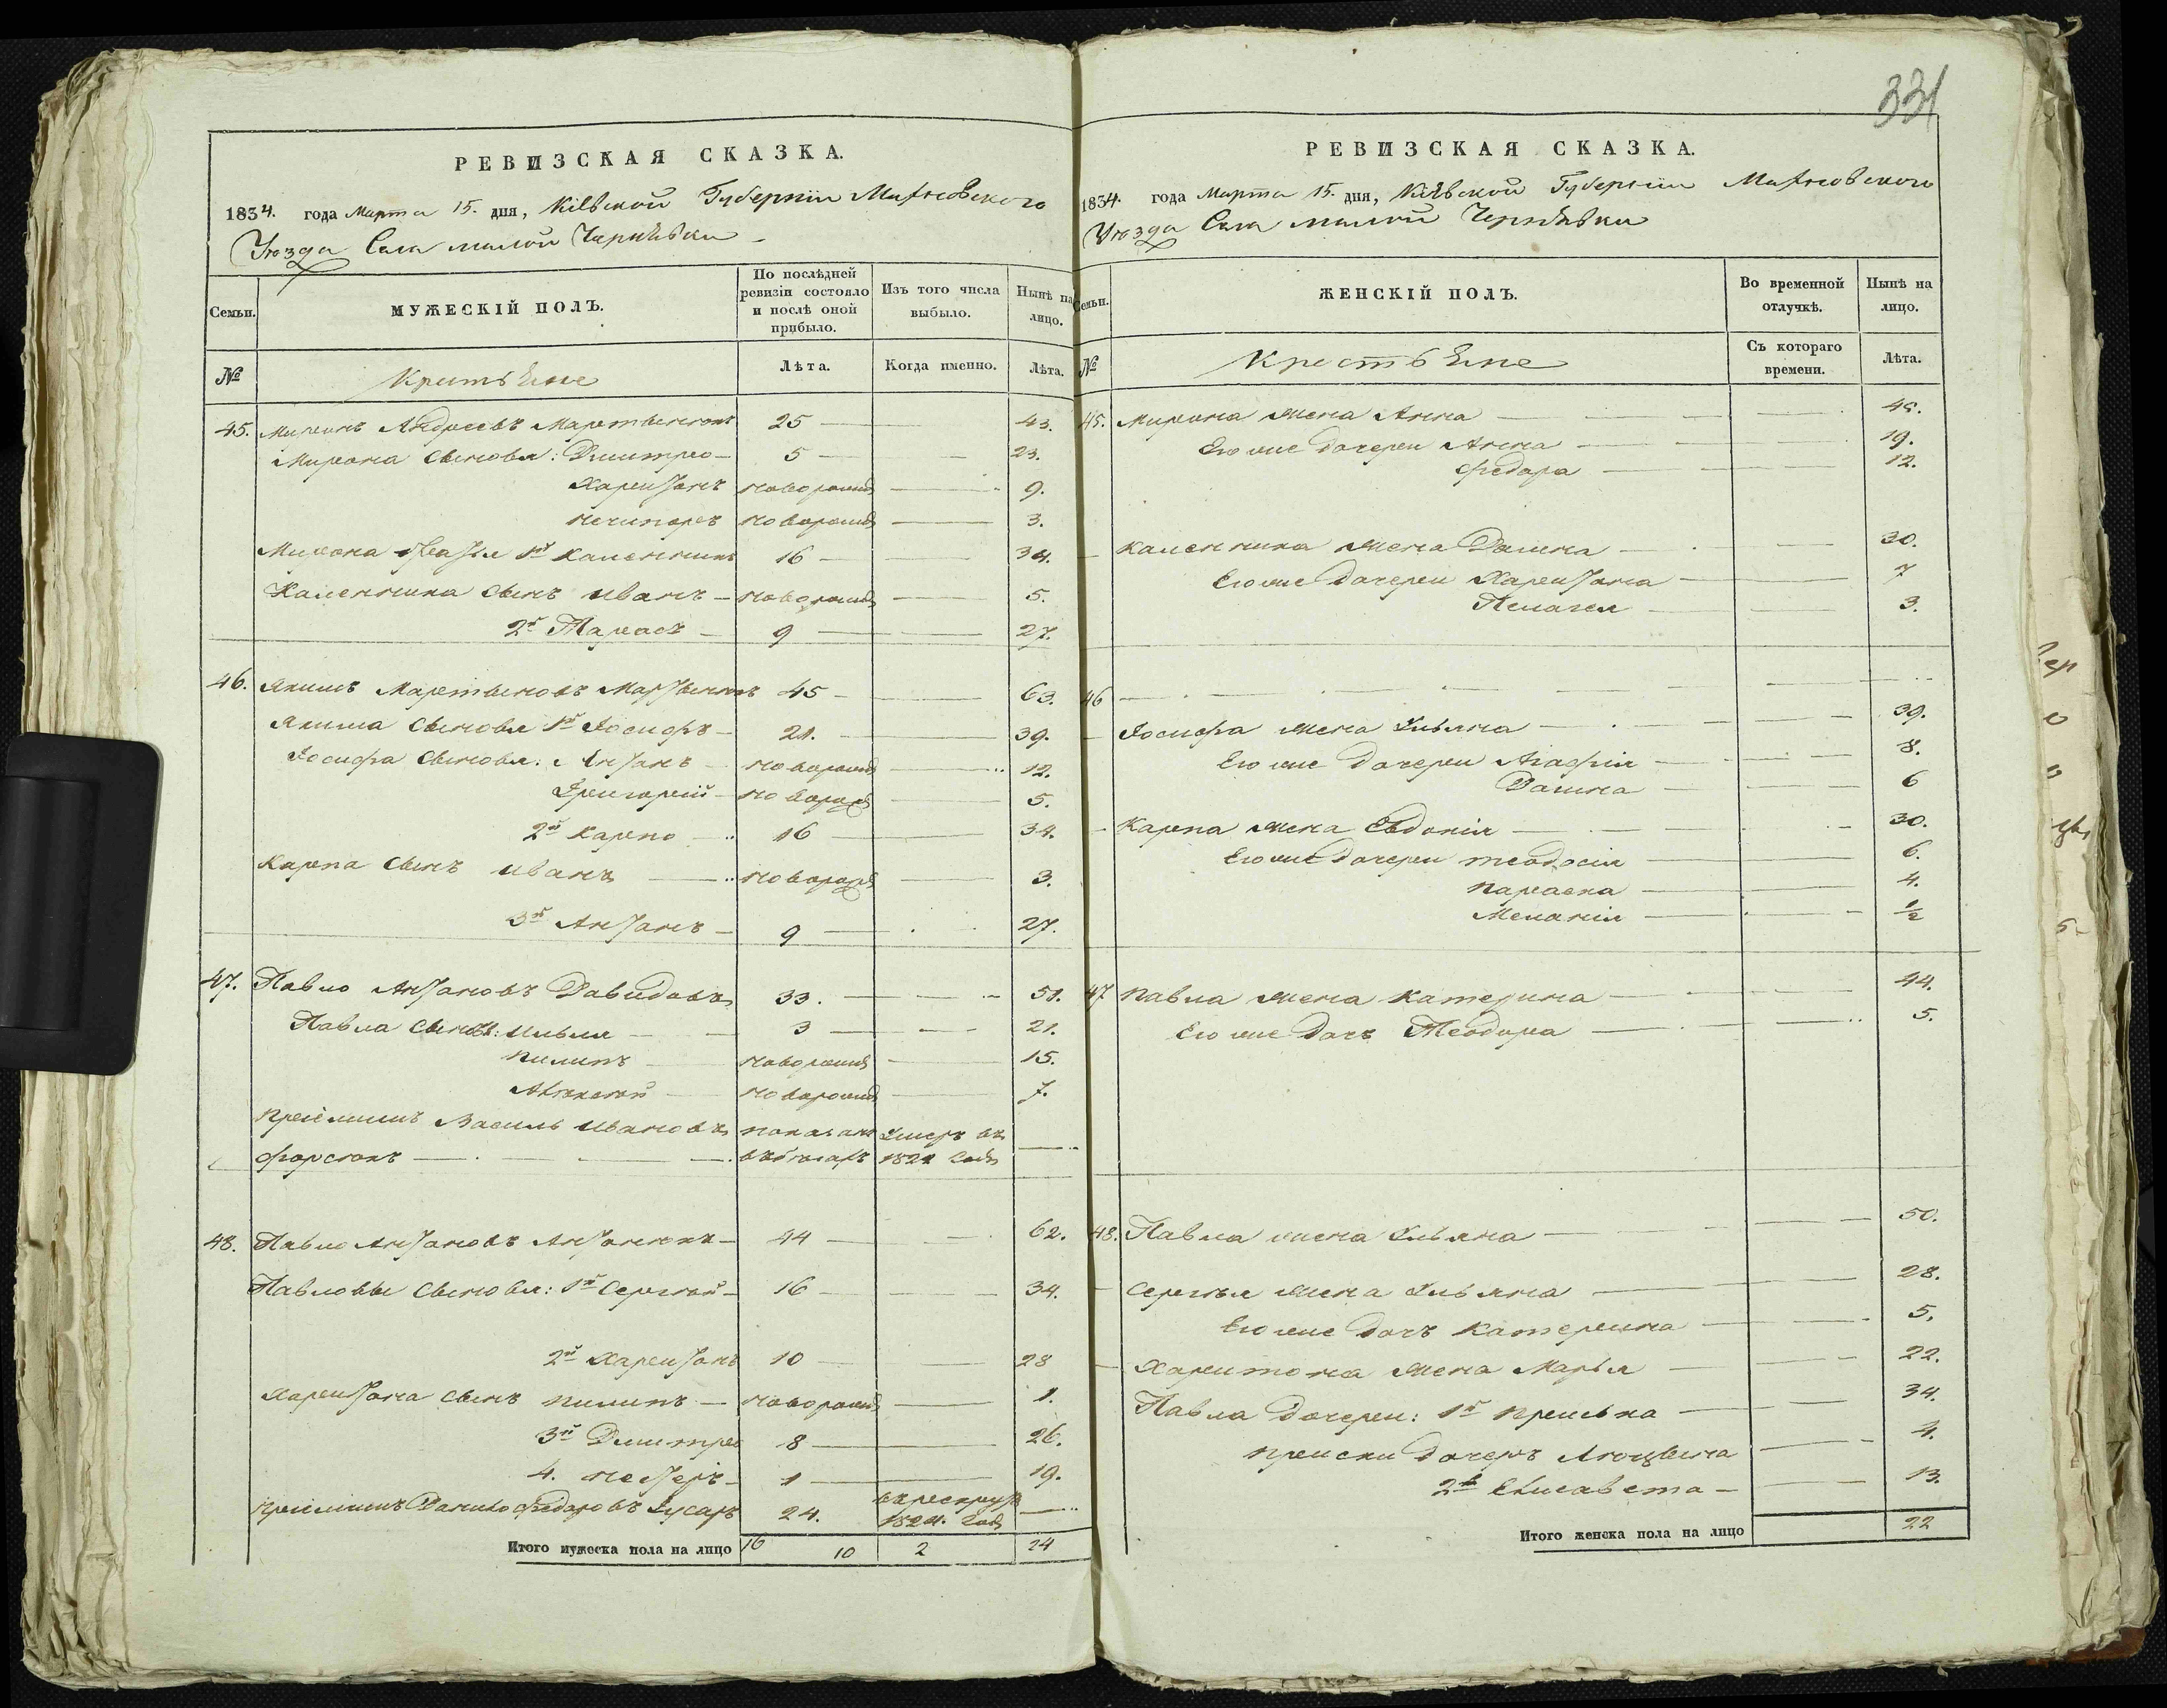 331
РЕВИЗСКАЯ СКАЗКА.
1834. года Марта 15. дня, Кіевской Губерніи Махновского
Уѣзда Села малой Чернѣвки
Семьи.
МУЖЕСКІЙ ПОЛЪ.
По послѣдней ревизіи состояло и послѣ оной прибыло.
Изъ того числа выбыло.
Нынѣ на лицо.
№
Лѣта.
Когда именно.
Лѣта.
45. Миронъ Андреевъ 25 43.
Мирона сыновья: Дмитро 5 23.
Харитонъ новорожд 9.
Нечипоръ новорожд 3.
Мирона 1й Каленникъ 16 34.
Каленника сынъ Иванъ новорожд 5.
2й Тарасъ 9 27.
46. Якимъ Мартыновъ 45 63.
Якима сыновья 1й Іосифъ 21. 39.
Іосифа сыновья: Антонъ новорожд 12.
Григорій новорожд 5.
2й Карпо 16 34.
Карпа сынъ Иванъ новорожд 3.
3й Антонъ 9 27.
47. Павло Антоновъ Давидовъ 33. 51.
Павла сыновья: Илья 3 21.
Пилипъ новорожд 15.
Алексей новорожд 7.
Приймышъ Василь Ивановъ показанъ Умеръ въ
въ бегахъ 1821 годѣ
48. Павло Антоновъ Антонюкъ 44 62.
Павловы сыновья: 1й Сергѣй 16 34.
2й Харитонъ 10 28
Харитона сынъ Пилипъ новорожд 1.
3й Дмитро 8 26.
4. Нестеръ 1 19.
Приймышъ Данило Федоровъ Гусаръ 24. в рекруты
1824. годѣ
Итого мужеска пола на лицо 16 10 2 24
РЕВИЗСКАЯ СКАЗКА.
1834. года Марта 15. дня, Кіевской Губерніи Махновского
Уѣзда Села малой Чернѣвки
Семьи.
ЖЕНСКІЙ ПОЛЪ.
Во временной отлучкѣ.
Нынѣ на лицо.
№
Крестьяне
Съ котораго времени.
Лѣта.
45. Мирона жена Анна
Его же дочери Анна 19.
Федора 12.
Каленника жена Домна 30.
Его же дочери Харитона 7
Пелагея 3.
46
Іосифа жена Ульяна 39.
Его же дочери Агафія 8.
Домна 6
Карпа жена Евдокія 30.
Его же дочери Теодосія 6.
Параска 4.
Меланія ½
47 Павла жена Катерина 44.
Его же дочь Теодора 5.
48. Павла жена Ульяна 50.
Сергѣя жена Ульяна 28.
Его же дочь Катерина 5.
Харитона жена Марья 22.
Павла дочери: 1я Приська 34.
Приски дочерь 4.
2я Елисавета 13.
Итого женска пола на лицо 22